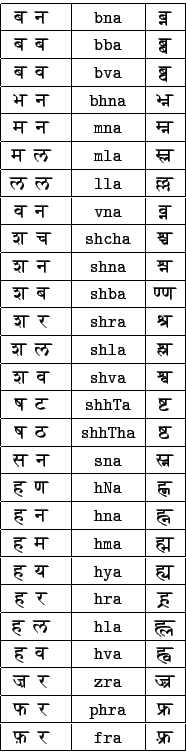 ब न bna ब्न
ब ब bba ब्ब
ब व bva ब्व
भ न bhna भ्न
म न mna म्न
म ल mla म्ल
ल ल lla ल्ल
व न vna व्न
श च shcha श्च
श न shna श्न
श ब shba ण्ण
श र shra श्र
श ल shla श्ल
श व shva श्व
ष ट shhTa ष्ट
ष ठ shhTha ष्ठ
स न sna स्न
ह ण hNa ह्ण
ह न hna ह्न
ह म hma ह्म
ह य hya ह्य
ह र hra ह्र
ह ल hla ह्ल
ह व hva ह्व
ज़ र zra ज़्र
फ र phra फ्र
फ़ र fra फ़्र